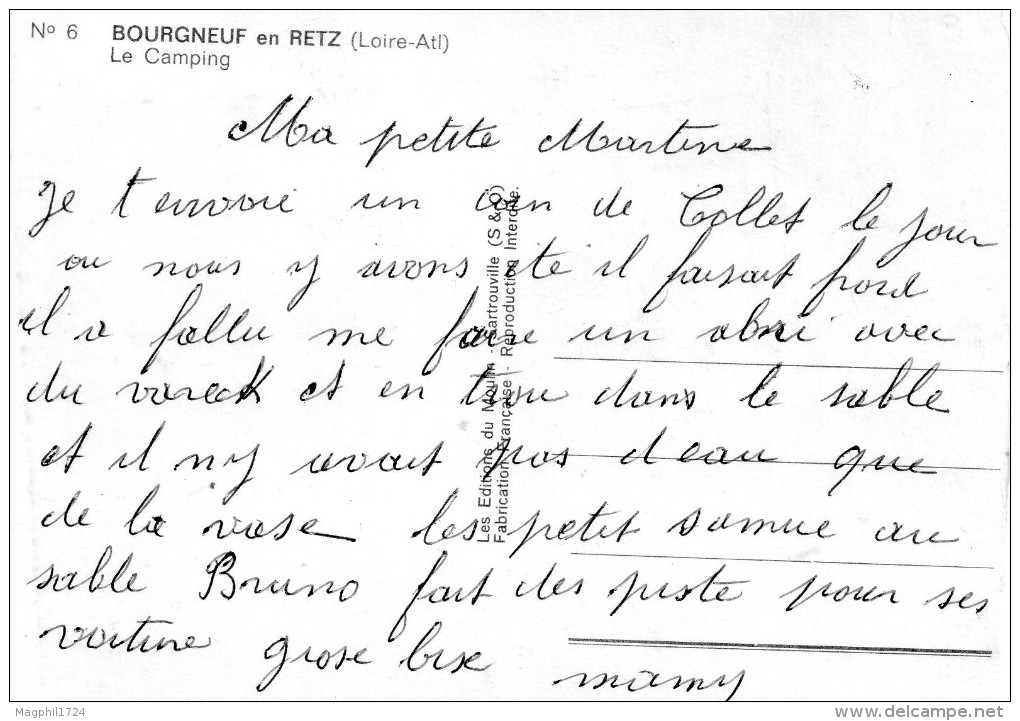 N° 6 BOURGNEUF en RETZ (Loire-Atl)
Le Camping
Ma petite Martine
je t envoie un coin de Collet le jour
ou nous y avons été il faisait froid
il a fallu me faire un abri avec
du vareck et en trou dans le sable
et il ny avait pas d eau que
de la vase les petit samuse au
sable Bruno fait des piste pour ses
voiture grose bise
mamy
Les Editions du Moulin - Sartrouville (S & O)
Fabrication Française - Reproduction Interdite.
Magphil1724
delcampe.net